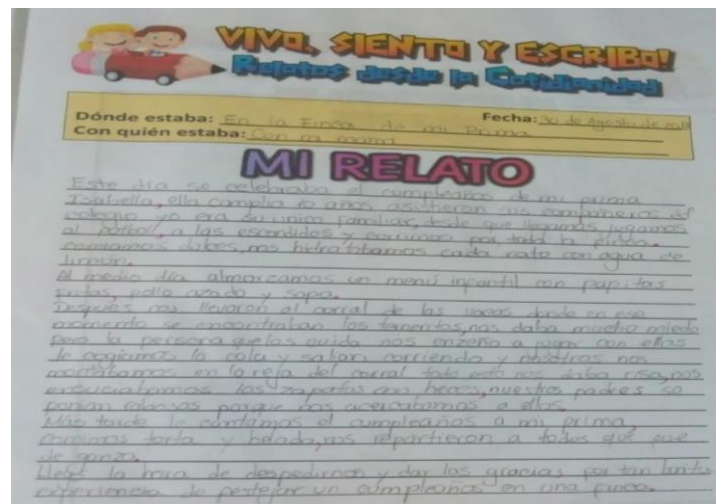 VIVO, SIENTO Y ESCRIBO!
Relatos desde la Cotidianidad
Dónde estaba: En la Finca de mi Prima Fecha: 30 de Agosto de
Con quién estaba: Con mi mamá
MI RELATO
Este día se celebraba el cumpleaños de mi prima
Isabella, ella cumplia 10 años asistieron sus compañeros del
colegio yo era su unico familiar, desde que llegamos jugamos
al football, a las escondidas y corrimos por toda la finca.
comíamos dulces, nos hidratabamos cada rato con agua de
limón.
Al medio día almorzamos un menú infantil con papitas
frutas, pollo azado y sopa.
Después nos llevaron al corral de las vacas donde en ese
momento se encontraban los terneritos, nos daba mucho miedo
pero la persona que los cuida nos enzeño a jugar con ellos
le cogiamos la cola y salian corriendo y nosotros nos
montabamos en la reja del corral todo esto nos daba risa, nos
ensuciabamos los zapatos con heces, nuestros padres se
ponian porque nos acercabamos a ellos.
Más tarde le cantamos el cumpleaños a mi prima,
comimos torta y helado, nos repartieron a todos
de
Llegó la hora de despedirnos y dar las gracias por tan bonita
experiencia de festejar un cumpleaños en una finca.